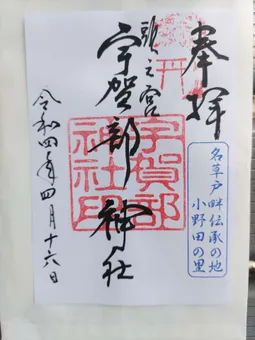 奉拝
頭之宮
宇賀部神社
宇賀部
神社印
令和四年四月十六日
名草戸畔伝承の地
小野田の里